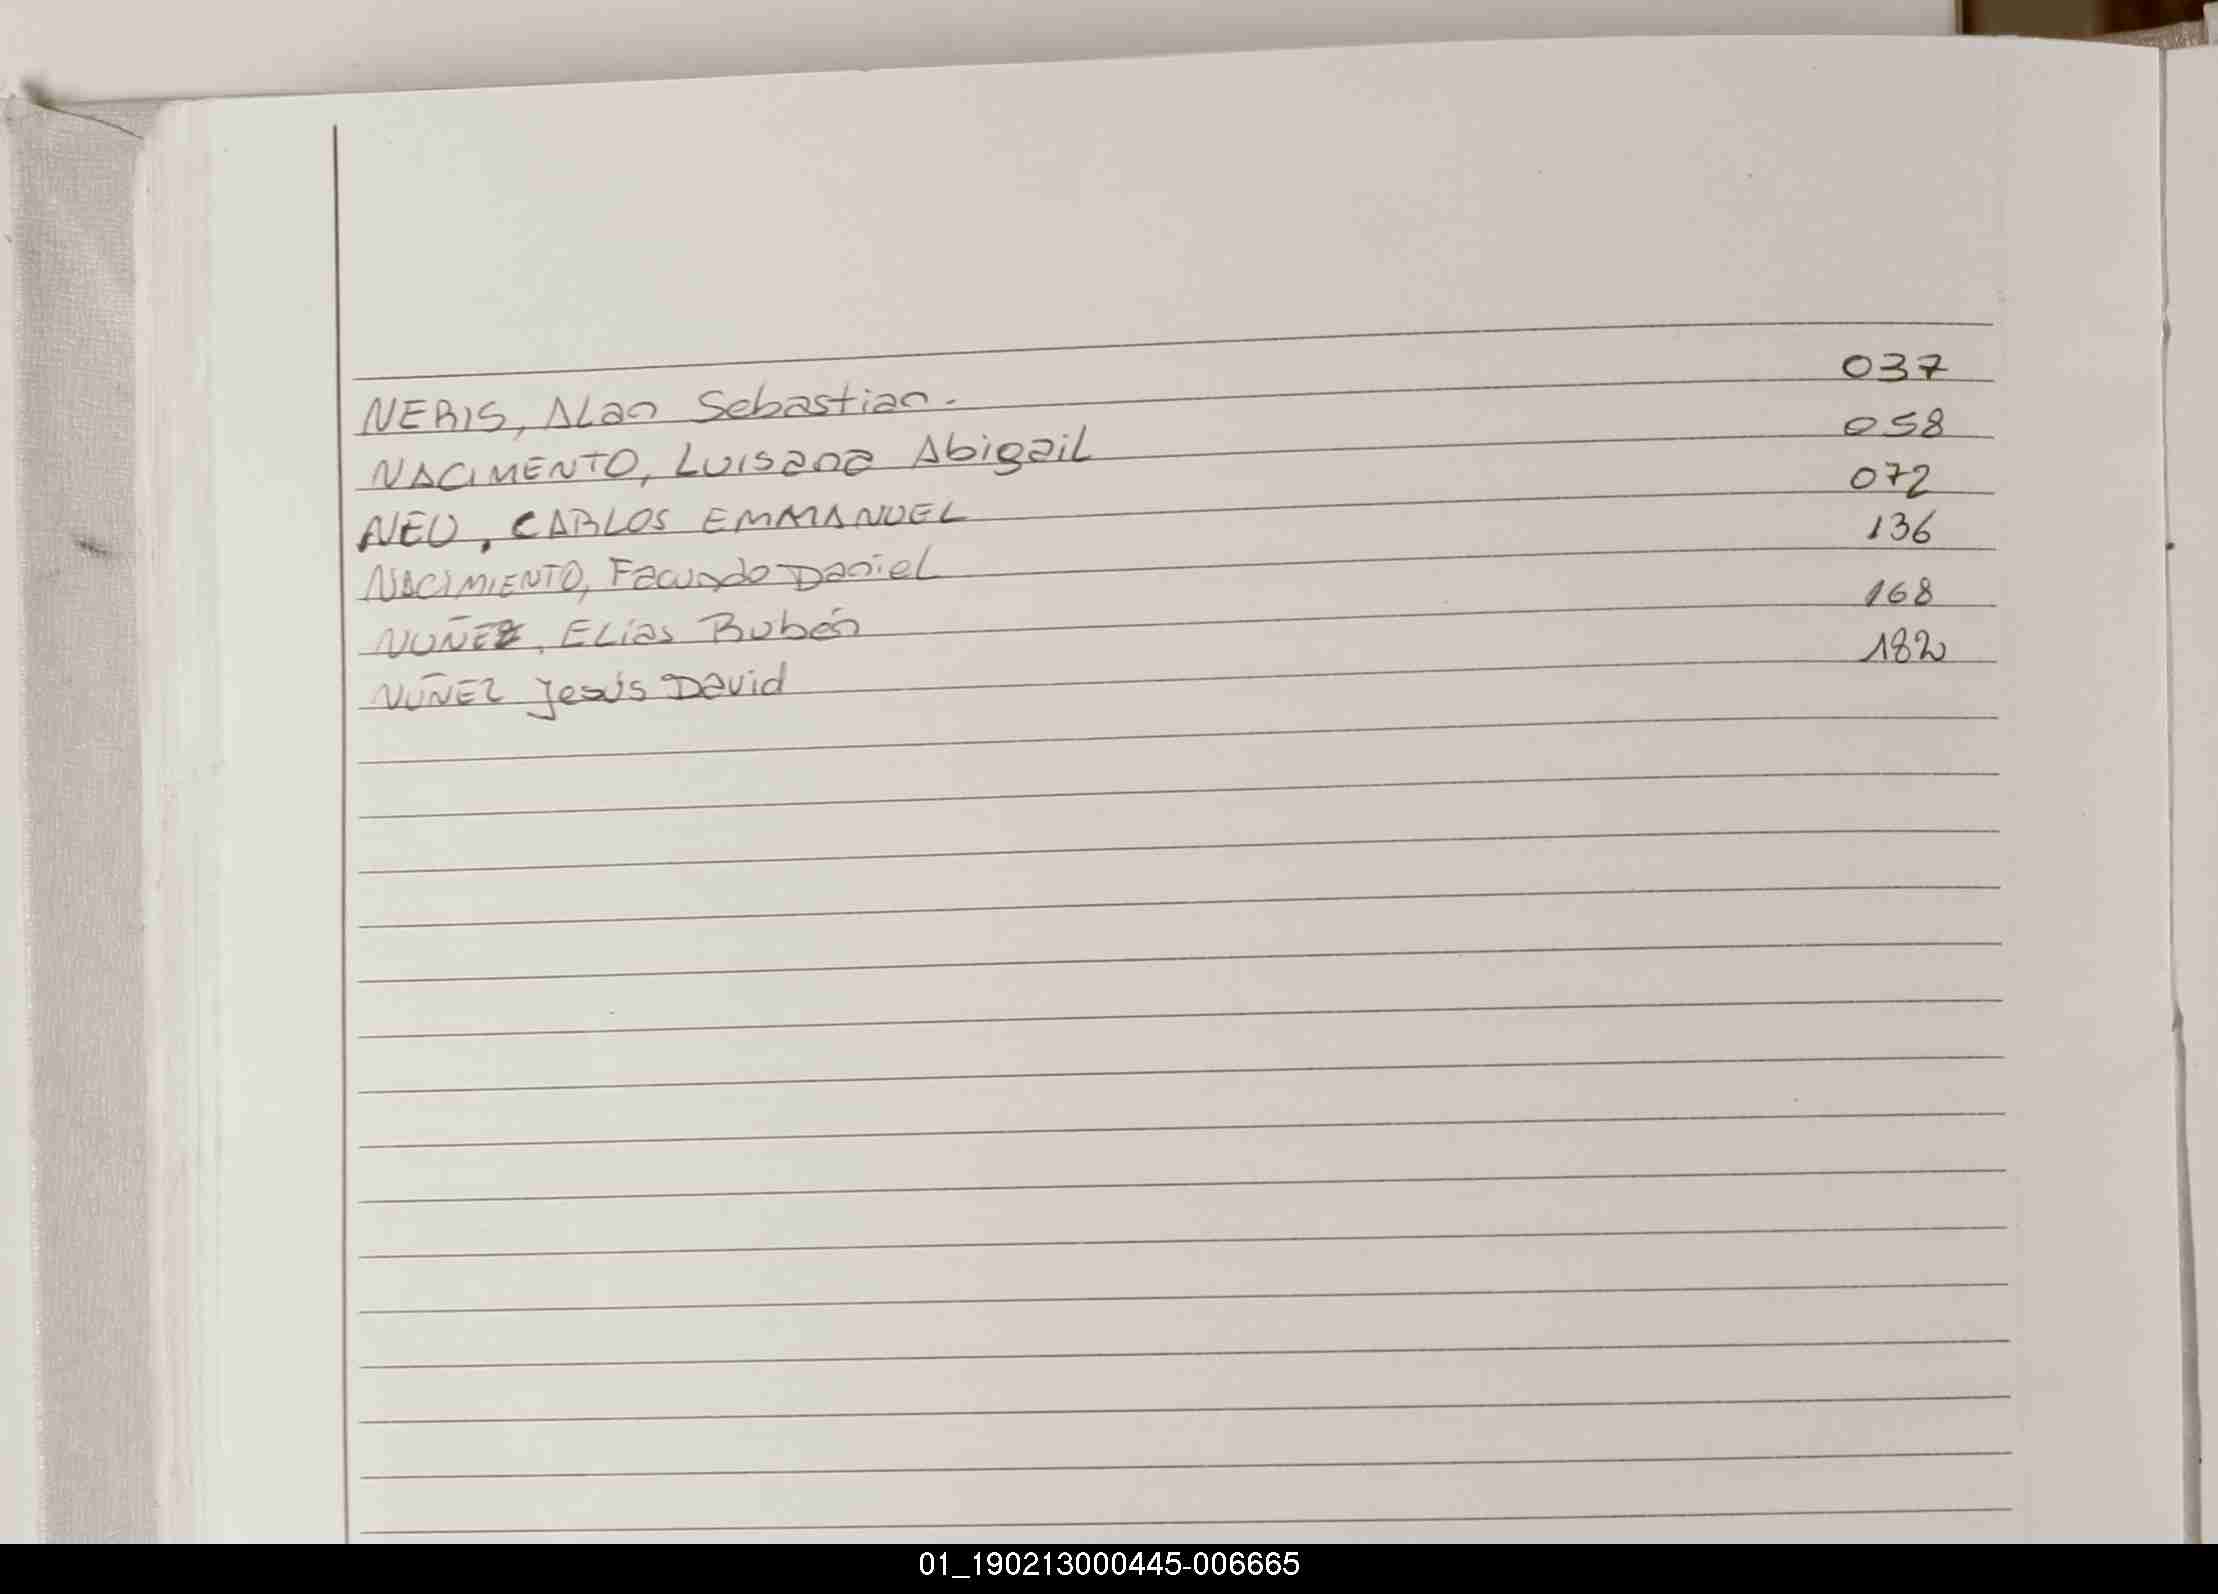 NERIS, ALan Sebastian. 037
NACIMENTO, LUISana Abigail 058
NEU, CARLOS EMMANUEL 072
NACIMIENTO, Facundo Daniel 136
NUÑEZ, ELias Rubén 168
NUÑEZ Jesús David 182
01_190213000445-006665